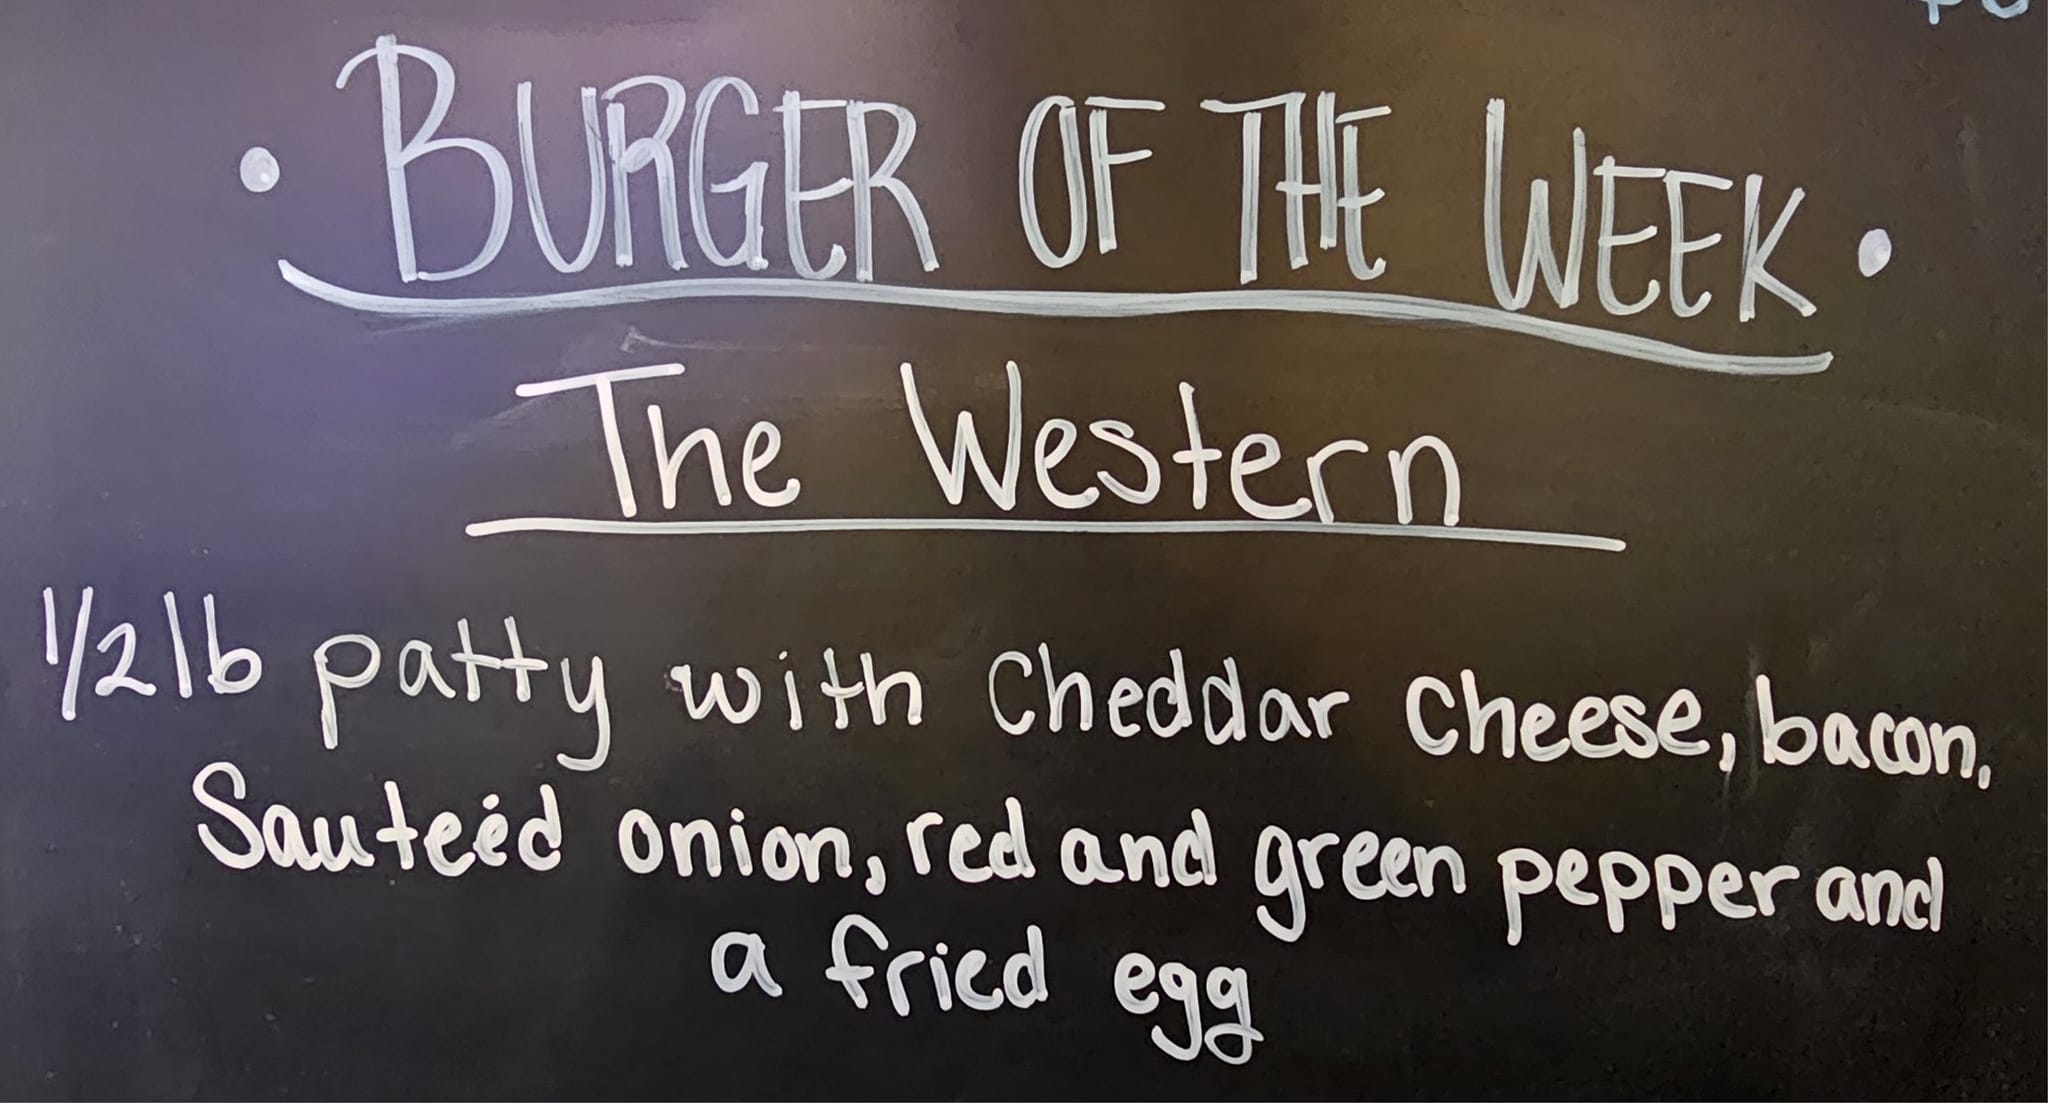 • BURGER OF THE WEEK •
The Western
1/2 lb patty with Cheddar Cheese, bacon,
Sauteéd onion, red and green pepper and
a fried egg